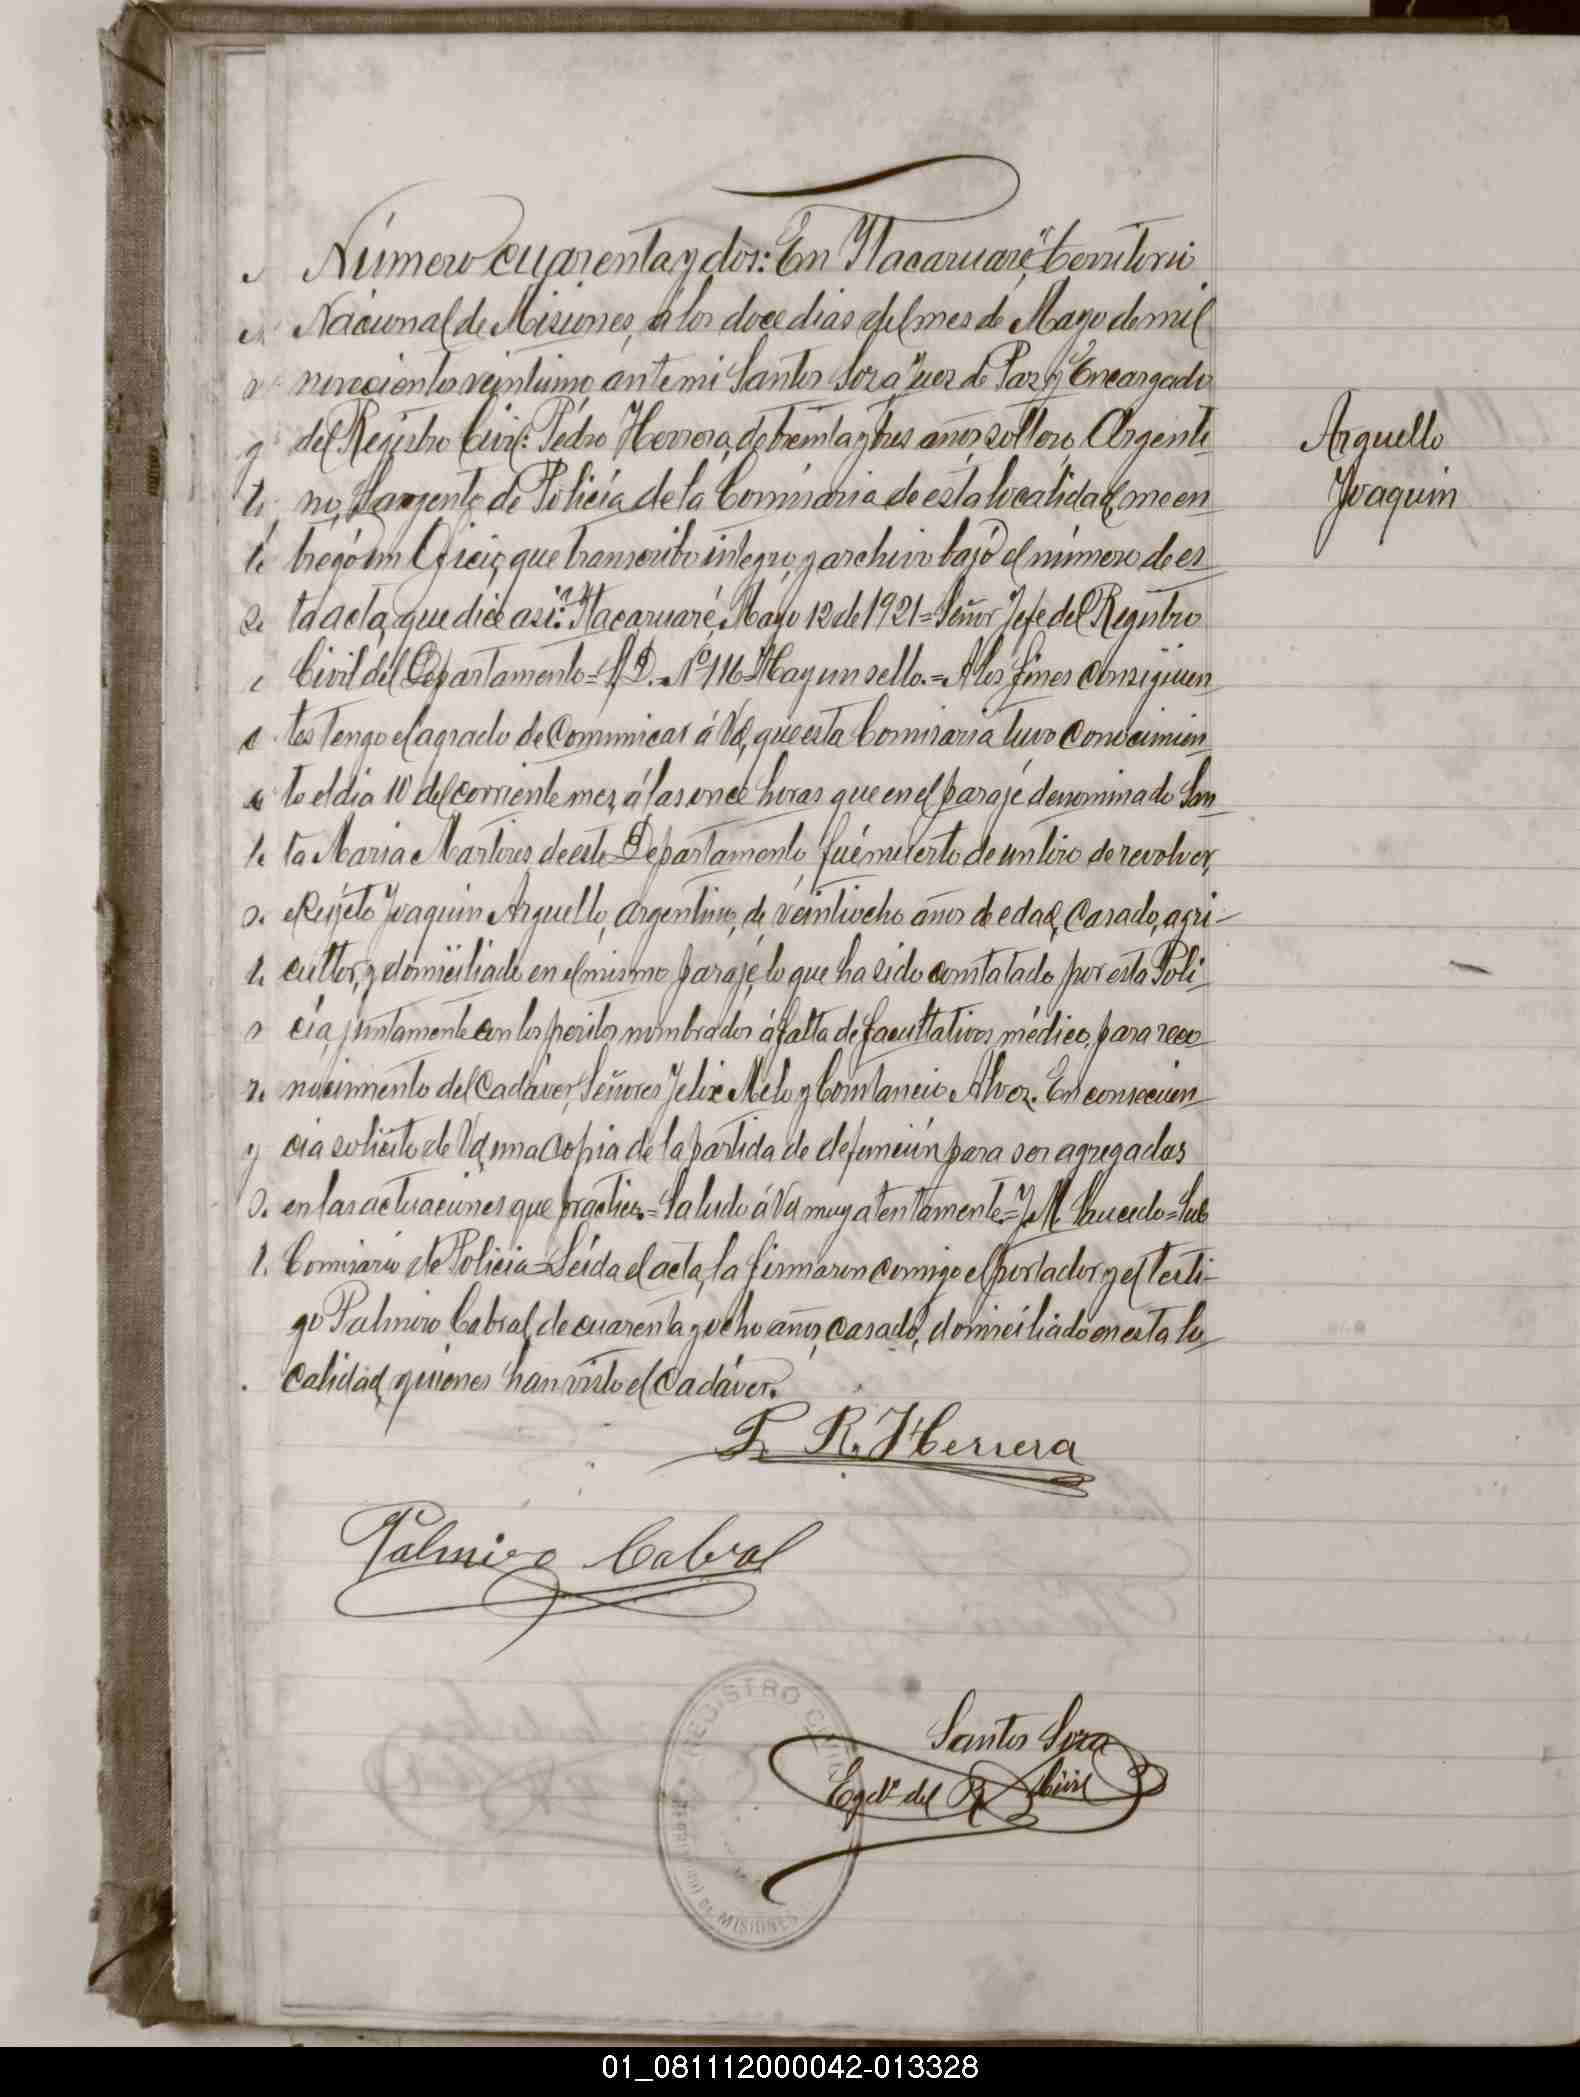 Número cuarenta y dos: En "Itacaruaré," territorio
Nacional de Misiones, á los doce dias del mes de Mayo de mil
novecientos veintiuno, ante mi Santos Soza Juez de Paz y Encargado
del Registro Civil: Pédro Herrera, de treinta y tres años, soltero, Argenti-
Arguello
no, Sargento de Policía de la Comisaria de esta localidad, me en-
Joaquin
tregó un Oficio, que transcribo integro, y archivo bajo el número de es-
ta acta, que dice asi: "Itacaruaré, Mayo 12 de 1921 = Señor Jefe del Registro
Civil del Departamento = S/D. = Nº 116 = Hay un sello. = A los fines consiguien-
tes tengo el agrado de comunicar á Vd, que esta Comisaria tuvo conocimien-
to el dia 10 del corriente mes, á las once horas que en el paraje denominado San-
ta Maria Martires, de este Departamento, fué muerto de un tiro de revolver,
el sujeto Joaquin Arguello, argentino, de veintiocho años de edad, casado, agri-
cultor, y domiciliado en el mismo paraje, lo que ha sido constatado por esta Poli-
cía, juntamente con los peritos nombrados á falta de facultativos médico, para reco-
nocimiento del cadáver, Señores Felix Melo y Constancio Alvez. En consecuen-
cia solicito de Vd, una copia de la partida de defunción para ser agregadas
en las actuaciones que practico. = Saludo á Vd muy atentamente. = J. M. Saucedo = Sub
Comisario de Policia = Leída el acta, la firmaron comigo el portador y el testi-
go Palmiro Cabral, de cuarenta y ocho años, casado, domiciliado en esta lo-
calidad, quienes han visto el cadáver.
P. R. Herrera
Palmiro Cabral
REGISTRO CIVIL
Santos Soza
Egdo del R. Civil
DE MISIONES
01_081112000042-013328